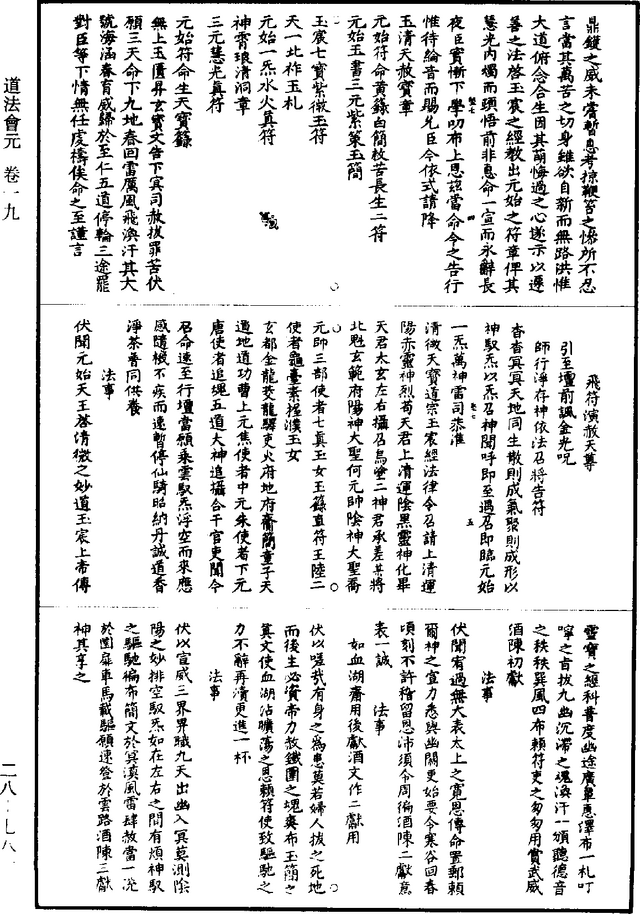 鼎鑊之威未嘗暫息考掠鞭笞之慘所不忍
言當其萬苦之切身雖欲自新而無路洪惟
大道俯念含生因其萌悔過之心遂示以遷
善之法啓玉宸之經教出元始之符章俾其
慧光內燭而頭悟前非恩命一宣而永辭長
夜臣實慚下學叨布上恩茲當命令之告行
惟待綸音而賜允臣今依式請降
玉清天赦寶章
元始符命黃籙白簡救苦長生二符
元始玉書三元紫策玉簡
玉宸七寶紫微玉符
天一北祚玉札
元始一炁水火真符
神霄琅清洞章
三元慧光真符
元始符命生天寶籙
無上玉匱昇玄寶文告下冥司赦拔罪苦伏
願三天命下九地春回雷厲風飛渙汗其大
號海涵春育咸歸於至仁五道停輪三途罷
對臣等下情無任虔禱俟命之至謹言
飛符演赦天尊
引至壇前諷金光呪
師行淨存神依法召將告符
杳杳冥冥天地同生散則成氣聚則成形以
神馭炁以炁召神聞呼即至遇召即臨元始
一炁萬神雷司恭准
清微天寶道宗玉宸經法律令召請上清運
陽赤靈神烈苟天君上清運陰黑靈神化畢
天君太玄左右攝召烏塗二神君承差某將
北魁玄範府陽神大聖何元帥陰神大聖喬
元帥三部使者七真玉女玉籙直符王陸二
使者龜臺素握濮玉女
玄都金龍茭龍驛吏火府地府齋簡童子天
道地道功曹上元焦使者中元朱使者下元
唐使者追魂五道大神追攝合干官吏聞今
召命速至行壇當願乘雲馭炁浮空而來應
感隨機不疾而速暫停仙騎昭納丹誠道香
淨茶普同供養
法事
伏聞元始天王啓清微之妙道玉宸上帝傳
靈寶之經科普度幽途廣覃惠澤布一札叮
嚀之旨拔九幽沉滯之魂渙汗一頒聽德音
之秩秩巽風四布賴符吏之匆匆用賞武威
酒陳初獻
法事
伏聞宥過無大表太上之寬恩傳命置郵賴
爾神之宣力悉與幽關更始要令寒谷回春
頃刻不許稽留恩沛須令周徧酒陳二獻意
表一誠
法事
如血湖齋用後獻酒文作二獻用
伏以嗟哉有身之為患莫若婦人拔之死地
而後生必資帝力赦鐵圍之塊奏布玉簡之
真文使血湖沾曠蕩之恩賴符使致驅馳之
力不辭再瀆更進一杯
法事
伏以宣威三界昇職九天出幽入冥莫測陰
陽之妙排空馭炁如在左右之間有煩神馭
之驅馳徧布簡文於冥漠風雷肆赦當一洗
於圜扉車馬載驅願速登於雲路酒陳三獻
神其享之
道法會元 卷一九
二八·七八